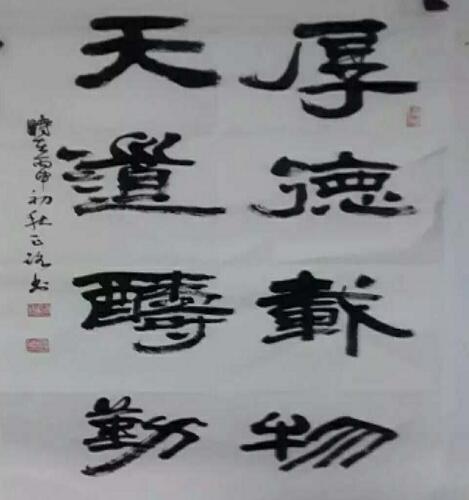 厚德載物
天道酬勤
時在丙申初秋正洺书